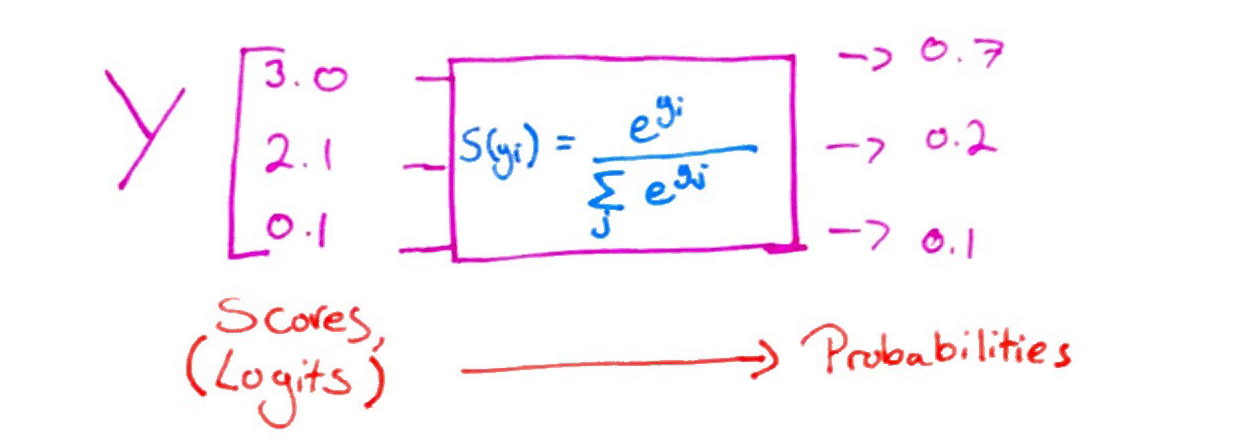 Y [ 3.0 → 0.7
2.1 S(yi) = e^yi / Σj e^yj → 0.2
0.1 → 0.1
Scores,
(Logits) → Probabilities